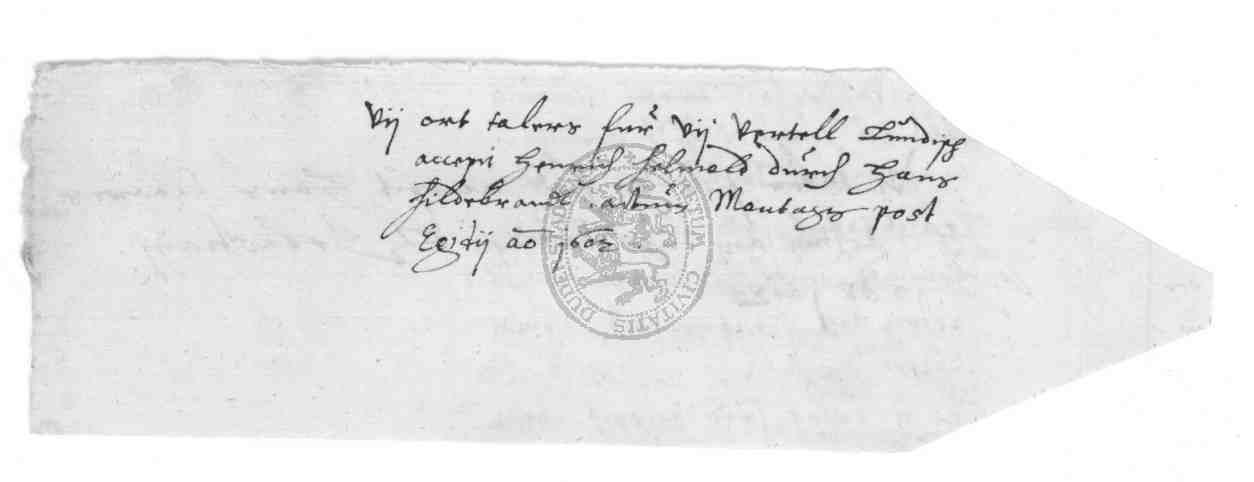 vij ort talers für vij vertell Lündisch
accepit Henrich Helmold durch Hans
Hildebrandt. actum Montags post
Egidij ao 1602.
CIVITATIS